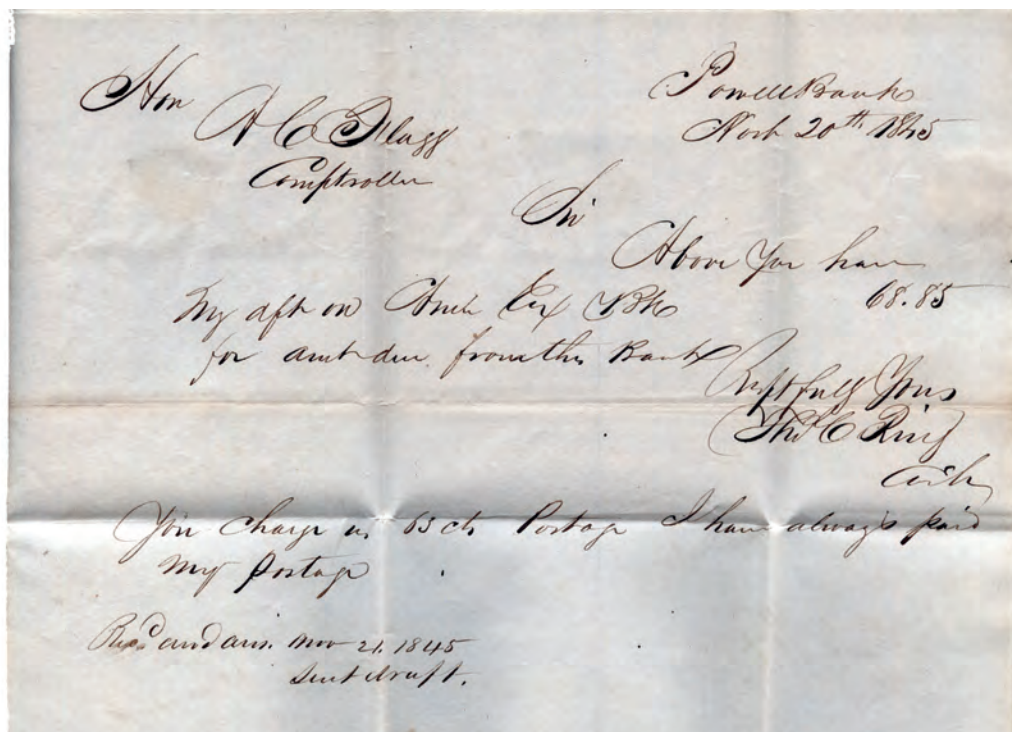 Powell Bank
Novb 20th 1845
Hon
A C Flagg
Comptroller
Sir
Above You have
My dft on Amer Ex Bk 68.85
for amt due from this Bank
Respt fully Yours
Thos C Ring
Cash
You charge us 63 cts Postage I have always paid
my postage
Recd and ans. Nov 21. 1845
Sent draft.